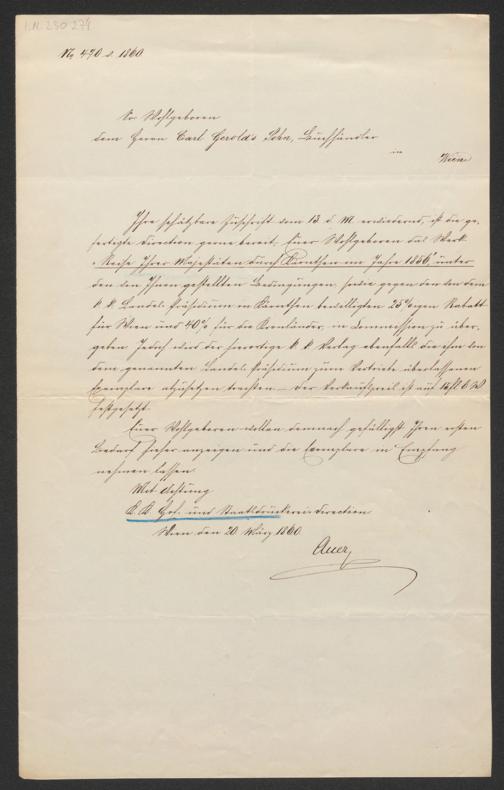 I.N. 230 274
No 470 d. 1860
Sr Wohlgeboren
dem Herrn Carl Gerold's Sohn, Buchhändler
in
Wien
Ihre schätzbare Zuschrift vom 13. d. M. erwiedernd, ist die ge-
fertigte Direction gerne bereit, Euer Wohlgeboren das Werk
"Reise Ihrer Majestäten durch Kärnthen im Jahre 1856" unter
den von Ihnen gestellten Bedingungen, sowie gegen den von dem
k. k. Landes-Präsidium in Kärnthen bewilligten 25%igen Rabatt
für Wien und 40% für die Kronländer, in Commission zu über-
geben. Jedoch wird der hierortige k. k. Verlag ebenfalls die ihm von
dem genannten Landes-Präsidium zum Vertriebe überlassenen
Exemplare abzusetzen trachten. – Der Verkaufspreis ist auf
festgesetzt.
Euer Wohlgeboren wollen demnach gefälligst Ihren ersten
Bedarf hieher anzeigen und die Exemplare in Empfang
nehmen lassen.
Mit Achtung
K. K. Hof- und Staatsdruckerei-Direction
Wien den 20. März 1860.
Auer